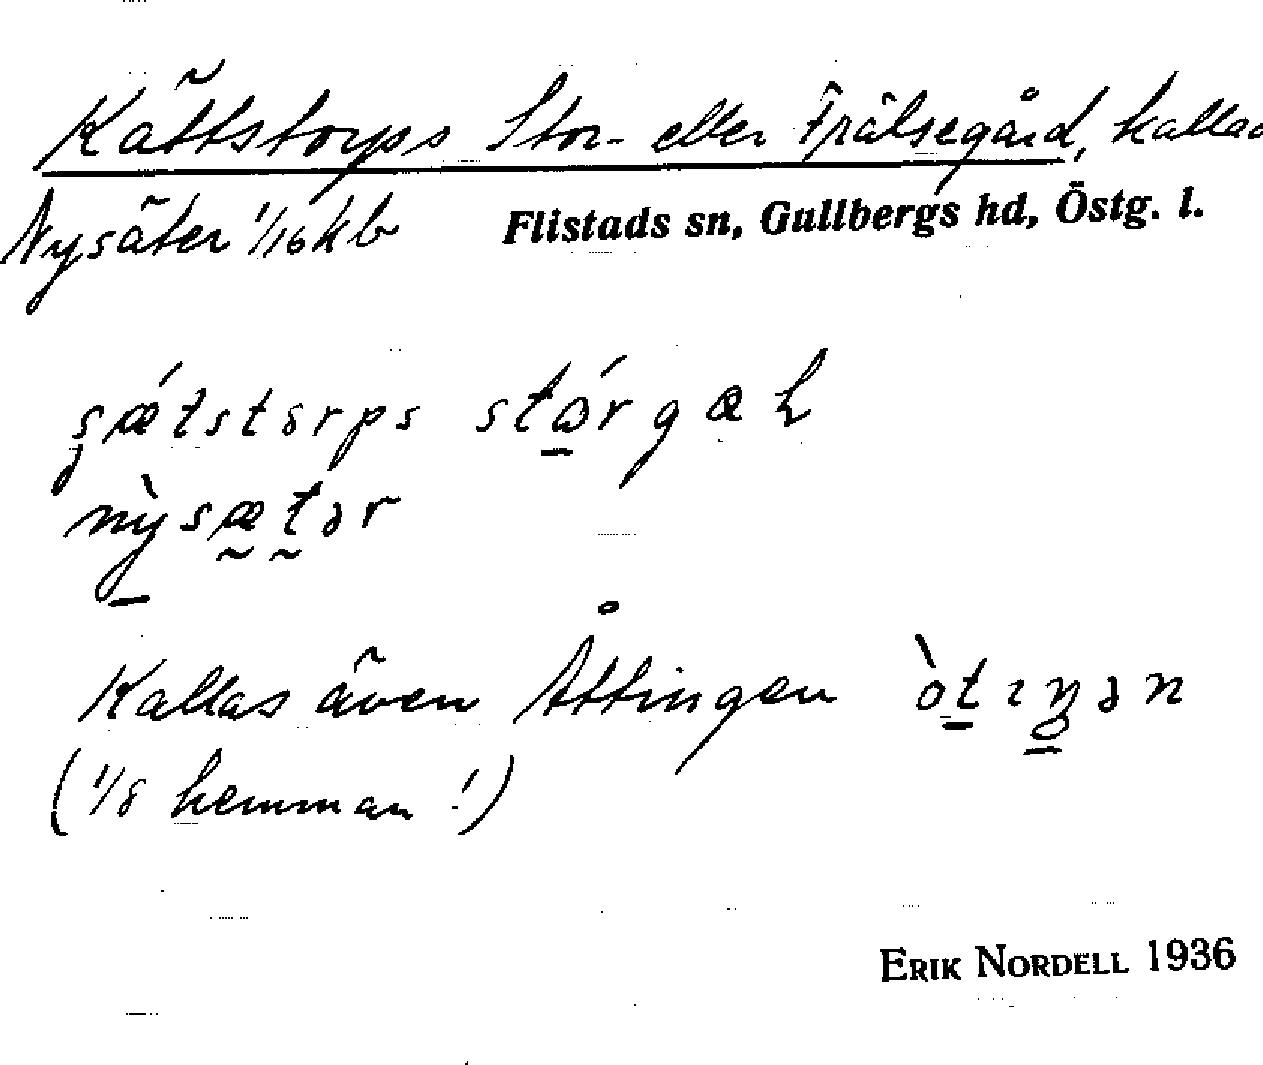 Kättstorps Stor- eller Frälsegård, kallad
Nysäter 1/16 kb Flistads sn, Gullbergs hd, Östg. l.
Kallas även Åttingen
(1/8 hemman!)
ERIK NORDELL 1936